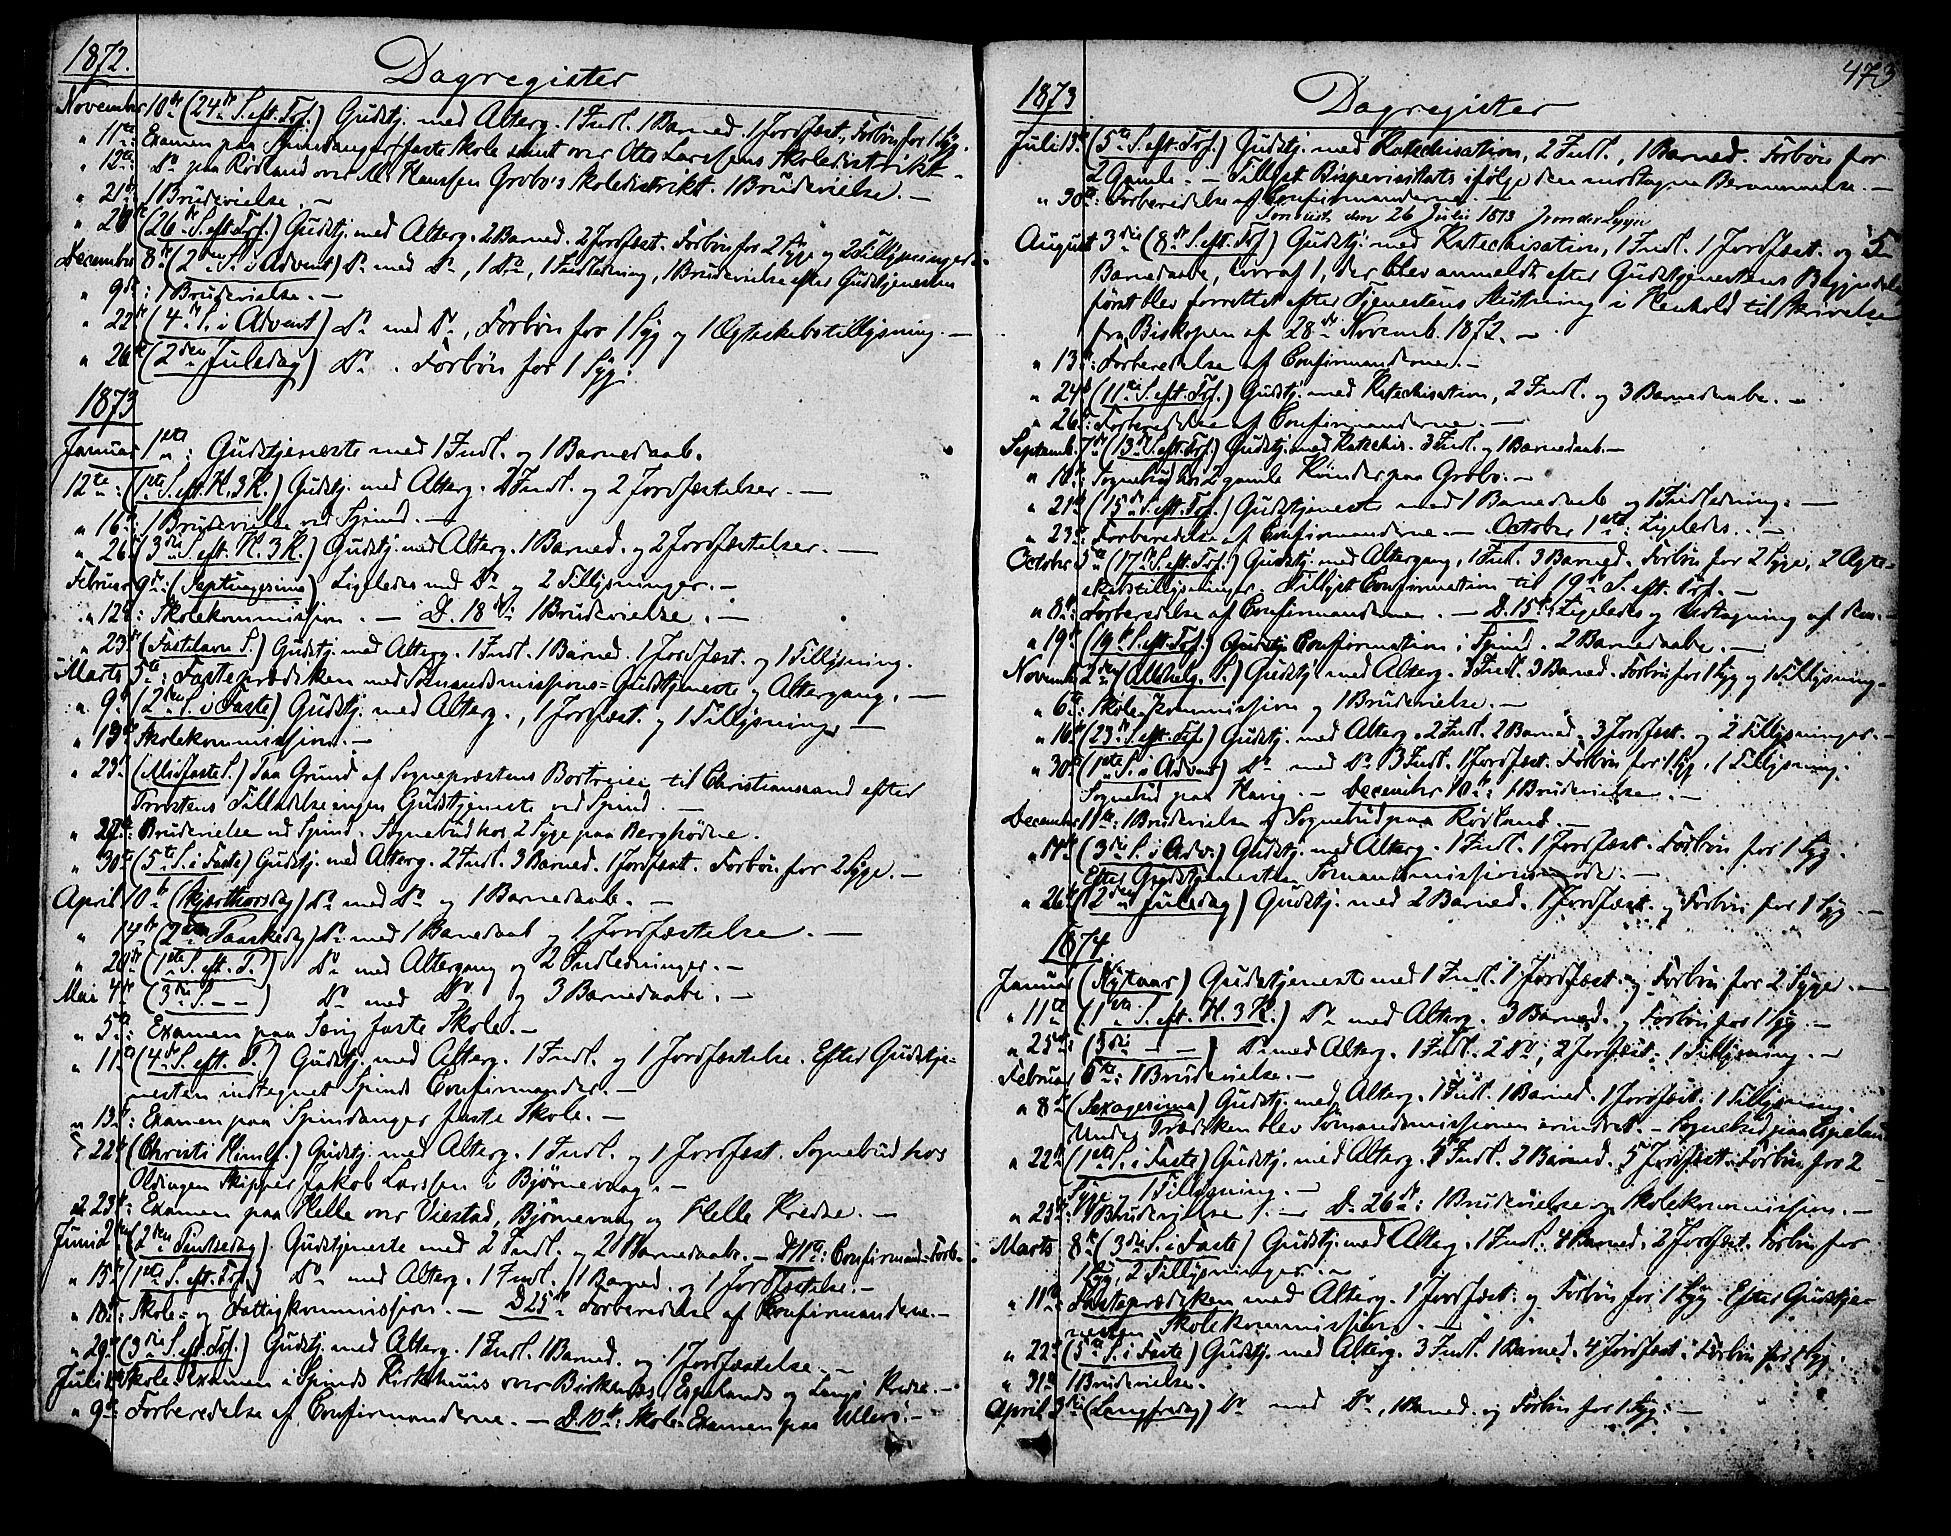 1872.
Dagregister
November 10de (24de S. eft. Trf.) Gudstj. med Alterg. 1 Indl. 1 Barned. 1 Jordfæst., Forbøn for 1 Syg.
" 11te Examen paa Spindanger faste Skole samt over Otto Larssens Skoledistrikt.
" 12te Do paa Rödland over M. Hanssen Grobo's Skoledistrikt. 1 Brudevielse. —
" 21de 1 Brudevielse. —
" (26de S. eft. Trf.) Gudstj. med Alterg. 2 Barned. 2 Jordfæst. Forbøn for 2 Syge og 2 Tillysninger. —
December 8de (2den S. i Advent) Do med Do, 1 Do, 1 Indledning, 1 Brudevielse efter Gudstjenesten
" 9de: 1 Brudevielse. —
" 22de (4de S. i Advent) Do med Do, Forbøn for 1 Syg og 1 Ægteskabstillysning. —
" 26de (2den Juledag) Do. Forbøn for 1 Syg.
1873
Januar 1ste: Gudstjeneste med 1 Indl. og 1 Barnedaab.
12te: (1ste S. eft. H. 3 K.) Gudstj. med Alterg. 2 Indl. og 2 Jordfæstelser. —
" 16de: 1 Brudevielse ved Spind. —
" 26de (3die S. eft. H. 3 K.) Gudstj. med Alterg. 1 Barned. og 2 Jordfæstelser. —
Februar 9de: (Septuagesima) Ligeledes med Do og 2 Tillysninger. —
" 12te: Skolekommission. — D. 18de: 1 Brudevielse. —
" 23de (Fastelavns S.) Gudstj. med Alterg. 1 Indl. 1 Barned. 1 Jordfæst. og 1 Tillysning.
Marts 5te: Fasteprædiken med Sömandsmissions-Gudstjeneste og Altergang. —
" 9de (2den S. i Faste) Gudstj. med Alterg., 1 Jordfæst. og 1 Tillysning. —
" 19de Skolekommission. —
" 23de (Midfaste S.) Paa Grund af Sognepræstens Bortreise til Christianssand efter
Provstens Tilladelse ingen Gudstjeneste ved Spind. —
" Brudevielse ved Spind. Sognebud hos 2 Syge paa Berghödne.
" 30te (5te S. i Faste) Gudstj. med Alterg. 2 Indl. 3 Barned. 1 Jordfæst. Forbøn for 2 Syge. —
April 10de (Skjærthorsdag) Do med Do og 1 Barnedaab. —
" 14de (2den Paaskedag) Do med 1 Barnedaab og 1 Jordfæstelse. —
" 20de (1ste S. eft. P.) Do med Altergang og 2 Indledninger. —
Mai 4de (3die S. — —) Do med Do og 3 Barnedaabe. —
" 5te: Examen paa faste Skole. —
" 11te (4de S. eft. P.) Gudstj. med Alterg. 1 Indl. og 1 Jordfæstelse. Efter Gudstje-
nesten indtegnet Spinds Confirmander. —
" 13de: Examen paa Spindanger faste Skole. —
22de (Christi Himlf.) Gudstj. med Alterg. 1 Indl. og 1 Jordfæst. Sognebud hos
Oldingen Skipper Jakob Larssen i Björnevaag. —
23de: Examen paa Helle over Viestad, Björnevaag og Helle Kredse. —
Juni 2den (2den Pintsedag) Gudstjeneste med 2 Indl. og 2 Barnedaabe. — D. 11te: Confirmand-Forb.
" 15de (1ste S. eft. Trf.) Do med Alterg. 1 Indl. 1 Barned. og 1 Jordfæstelse. —
" 18de: Skole- og Fattigkommission. — D. 25de Forberedelse af Confirmanderne. —
" 29de (3die S. eft. Trf.) Gudstj. med Alterg. 1 Indl. 1 Barned. og 1 Jordfæstelse. —
Juli Skole-Examen i Spinds Kirkehuus over Birkenæs, Espelands og Kredse. —
" 9de Forberedelse af Confirmanderne. — D. 10de: Skole-Examen paa Ullerö. —
473
1873
Dagregister
Juli 13de (5te S. eft. Trf.) Gudstj. med Katechisation, 2 Indl., 1 Barned. Forbøn for
2 Gamle. — Tillyst Bispevisitats ifølge den modtagne Berammelse. —
" 30te: Forberedelse af Confirmanderne. —
den 26 Juli 1873
August 3die (8de S. eft. Trf.) Gudstj. med Katechisation, 1 Indl. 1 Jordfæst. og 5
Barnedaabe, hvoraf 1, der blev anmeldt efter Gudstjenestens Begyndelse
først blev forrettet efter Tjenestens Slutning i Henhold til Skrivelse
fra Biskopen af 28de Novemb. 1872. —
" 13de: Forberedelse af Confirmanderne. —
" 24de (11te S. eft. Trf.) Gudstj. med Katechisation, 2 Indl. og 3 Barnedaabe. —
" 26de: Forberedelse af Confirmanderne. —
Septemb. 7de (13de S. eft. Trf.) Gudstj. med Katechis. 3 Indl. og 1 Barnedaab. —
" 10de: Sognebud hos 2 gamle Kvinder paa Grobo. —
" 21de (15de S. eft. Trf.) Gudstjeneste med 1 Barnedaab og 1 Indledning. —
" 23de: Forberedelse af Confirmanderne. — October 1ste: Ligeledes. —
October 5te (17de S. eft. Trf.) Gudstj. med Altergang, 1 Indl. 3 Barned. Forbøn for 2 Syge, 2 Ægte-
skabstillysninger. Tillyst Confirmation til 19de S. eft. Trf. —
" 8de: Forberedelse af Confirmanderne. — D. 15de: Ligeledes og Udtagning af den. —
" 19de (19de S. eft. Trf.) Gudstj. Confirmation i Spind. 2 Barnedaabe. —
Novemb. 2den (Allehelg. S.) Gudstj. med Alterg. 3 Indl. 3 Barned. Forbøn for 1 Syg og 1 Tillysning. —
" 6te: Skolekommission og 1 Brudevielse. —
" 16de (23de S. eft. Trf.) Gudstj. med Alterg. 2 Indl. 2 Barned. 3 Jordfæst. og 2 Tillysninger. —
" 30te (1ste S. i Advent) Do med Do 3 Indl. 1 Jordfæst. Forbøn for 1 Syg, 1 Tillysning.
Sognebud paa Havig. — December 10de: 1 Brudevielse. —
December 11te: 1 Brudevielse og Sognebud paa Rödland. —
" 14de (3die S. i Adv.) Gudstj. med Alterg. 1 Indl. 1 Jordfæst. Forbøn for 1 Syg.
Efter Gudstjenesten Sömandsmissionsmøde. —
" 26de (2den Juledag) Gudstj. med 2 Barned. 1 Jordfæst. og Forbøn for 1 Syg —
1874
Januar (Nytaar) Gudstjeneste med 1 Indl. 1 Jordfæst. og Forbøn for 2 Syge. —
" 11te (1ste S. eft. H. 3 K.) Do med Alterg. 3 Barned. og Forbøn for 1 Syg. —
" 25de: (3die — —) Do med Alterg. 1 Indl. 2 Do, 2 Jordfæst. 1 Tillysning. —
Februar 6te: 1 Brudevielse. —
" 8de (Sexagesima) Gudstj. med Alterg. 1 Indl. 1 Barned. 1 Jordfæst. 1 Tillysning.
Under Prædiken blev Sömandsmissionen erindret. — Sognebud paa Espeland
" 22de (1ste S. i Faste) Gudstj. med Alterg. Indl. 2 Barned. 5 Jordfæst. Forbøn for 2
Syge og 1 Tillysning. —
" 23de: 1 Brudevielse. — D. 26de: 1 Brudevielse og Skolekommission. —
Marts 8de (3die S. i Faste) Gudstj. med Alterg. 1 Indl. 4 Barned. 2 Jordfæst. Forbøn for
1 Syg, 2 Tillysninger. —
" 11te: Fasteprædiken med Alterg. 1 Jordfæst. og Forbøn for 1 Syg. Efter Gudstje-
nesten Skolekommission. —
" 22de (5te S. i Faste) Gudstj. med Alterg. 3 Indl. 1 Barned. 4 Jordfæst. Forbøn for 1 Syg.
" 31te 1 Brudevielse.
April 3die (Langfredag) Do med Do, 1 Barned. og Forbøn for 1 Syg. —